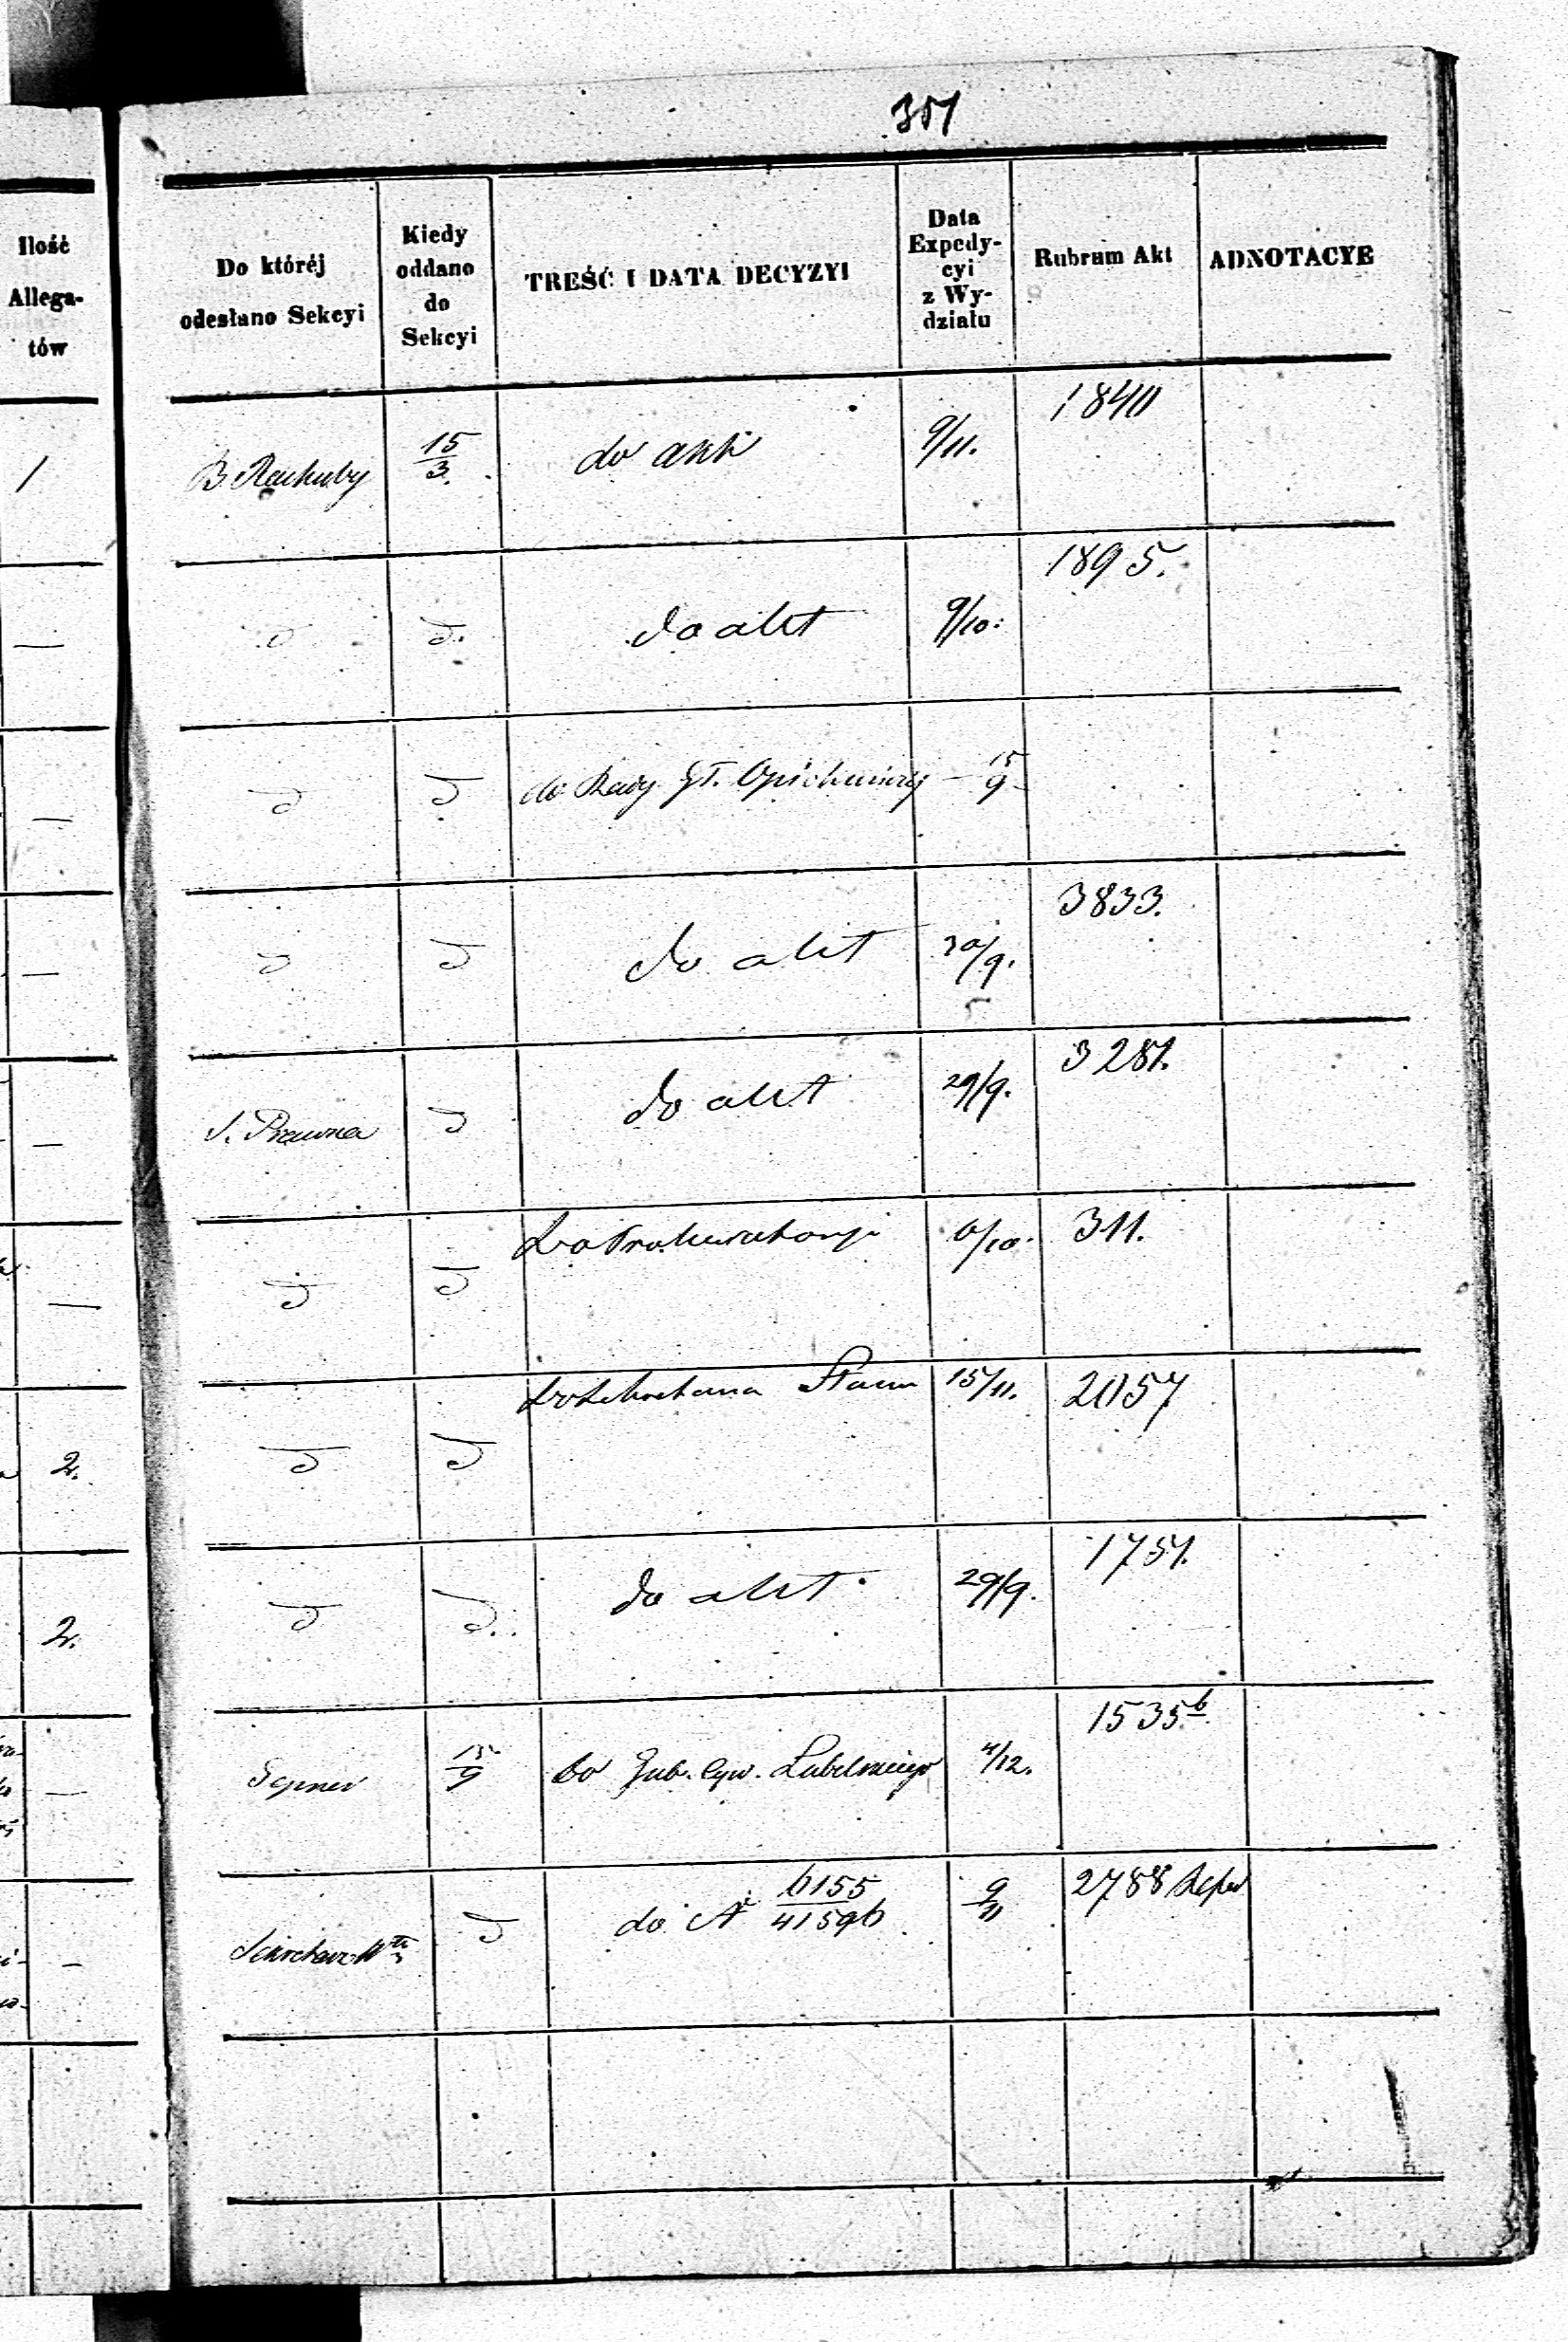 351
Ilość Allega- tów
Do któréj odesłano Sekcyi
Kiedy oddano do Sekcyi
TREŚĆ I DATA DECYZYI
Data Expedy- cyi z Wy- działu
Rubrum Akt
ADNOTACYE
1 B. Rachuby 15/3. do akt 9/11. 1840
— d d. do akt 9/10. 1895.
— d d do Rady Gł. Opiekuńczej — 15/9
— d d do akt 30/9. 3833.
— S. Prawna d do akt 29/9. 3281.
— d d Do Prokuratoryi 6/10. 311.
2. d d Do Sekretarza Stanu 15/11. 2057
2. d d. do akt 29/9. 1751.
— 15/9 Do Gub. Cyw. Lubelskiego 4/12. 1535 b
— Sekretarz d do N 6155/41596 9/11 2788